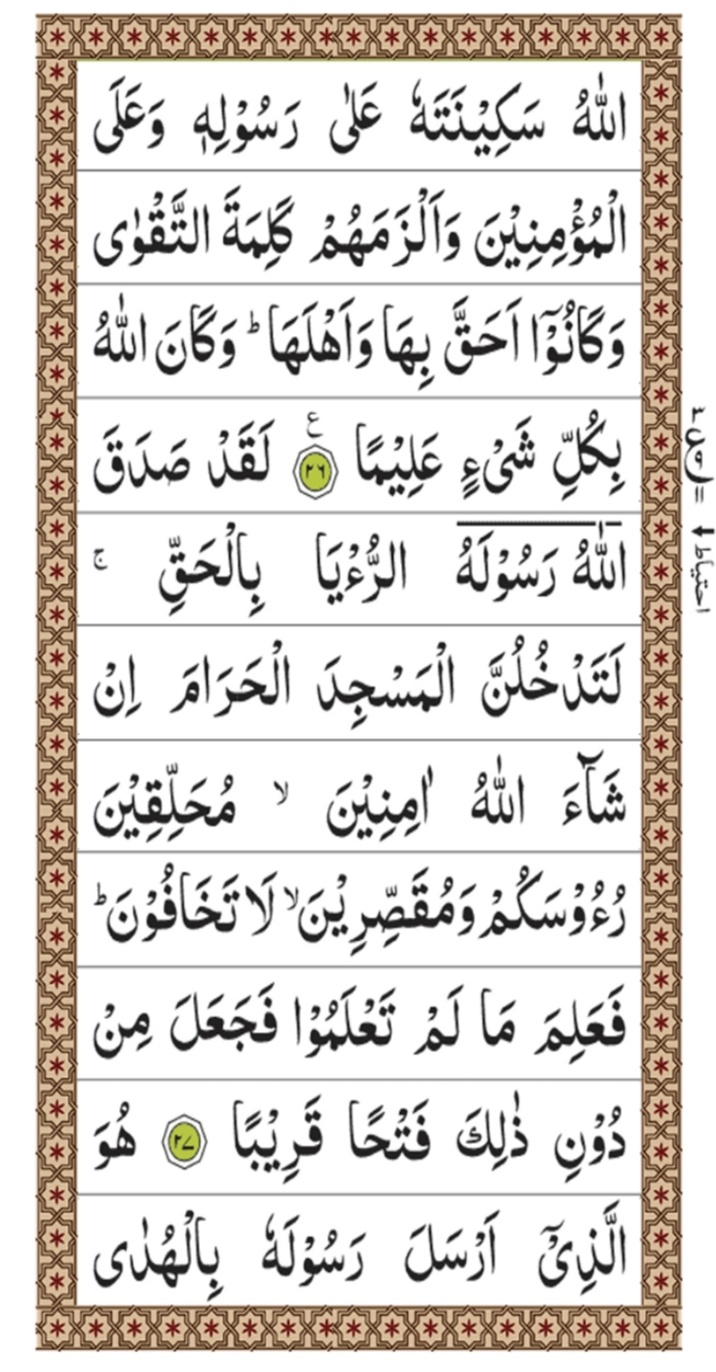 اللّٰهُ سَكِيْنَتَهٗ عَلٰى رَسُوْلِهٖ وَعَلَى
الْمُؤْمِنِيْنَ وَاَلْزَمَهُمْ كَلِمَةَ التَّقْوٰى
وَكَانُوْۤا اَحَقَّ بِهَا وَاَهْلَهَا ؕ وَكَانَ اللّٰهُ
بِكُلِّ شَىْءٍ عَلِيْمًا ع ٢٦ لَقَدْ صَدَقَ
اللّٰهُ رَسُوْلَهُ الرُّءْيَا بِالْحَقِّ ۚ
لَتَدْخُلُنَّ الْمَسْجِدَ الْحَرَامَ اِنْ
شَآءَ اللّٰهُ اٰمِنِيْنَ ۙ مُحَلِّقِيْنَ
رُءُوْسَكُمْ وَمُقَصِّرِيْنَ ۙ لَا تَخَافُوْنَ ؕ
فَعَلِمَ مَا لَمْ تَعْلَمُوْا فَجَعَلَ مِنْ
دُوْنِ ذٰلِكَ فَتْحًا قَرِيْبًا ٢٧ هُوَ
الَّذِىْۤ اَرْسَلَ رَسُوْلَهٗ بِالْهُدٰى
احتياط